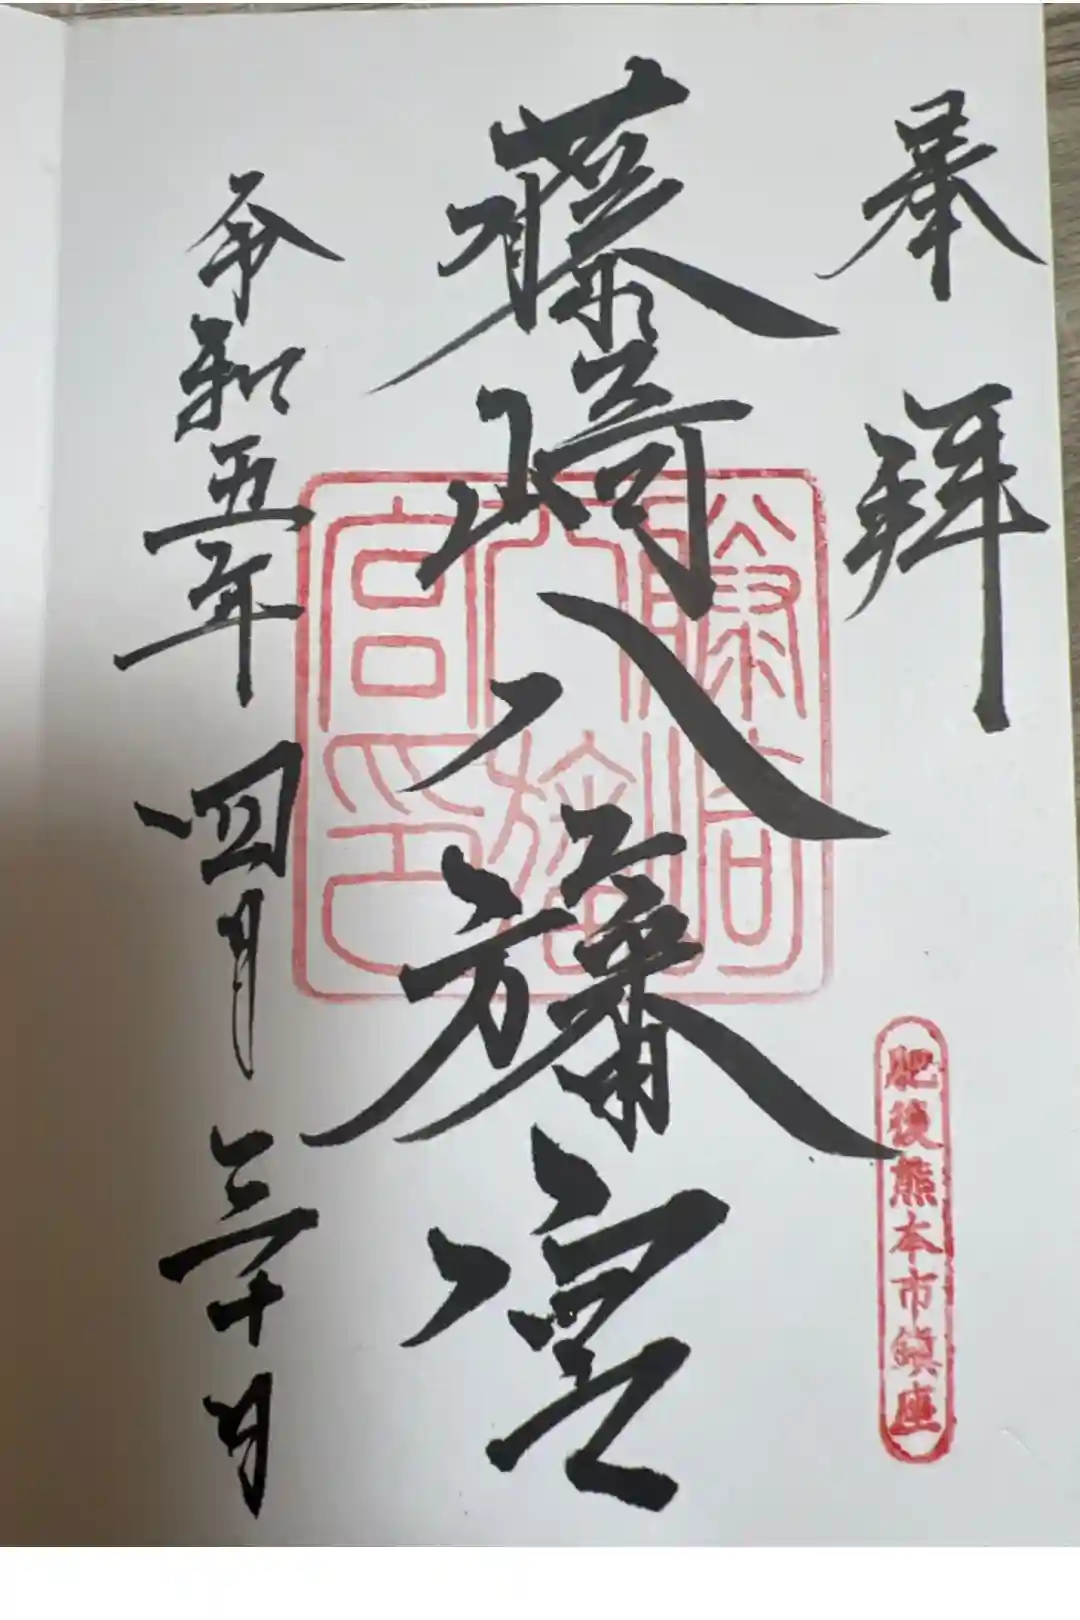 奉拝
肥後熊本市鎮座
藤崎八旛宮
藤崎八旛宮印
令和五年四月三十日